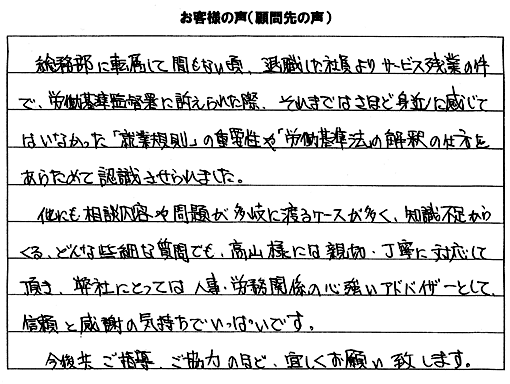 お客様の声(顧問先の声)
総務部に転属して間もない頃、退職した社員よりサービス残業の件
で、労働基準監督署に訴えられた際、それまではさほど身近に感じて
はいなかった「就業規則」の重要性や「労働基準法」の解釈の仕方を
あらためて認識させられました。
他にも相談内容や問題が多岐に渡るケースが多く、知識不足から
くる、どんな些細な質問でも、高山様には親切・丁寧に対応して
頂き、弊社にとっては人事・労務関係の心強いアドバイザーとして、
信頼と感謝の気持ちでいっぱいです。
今後共ご指導、ご協力のほど、宜しくお願い致します。